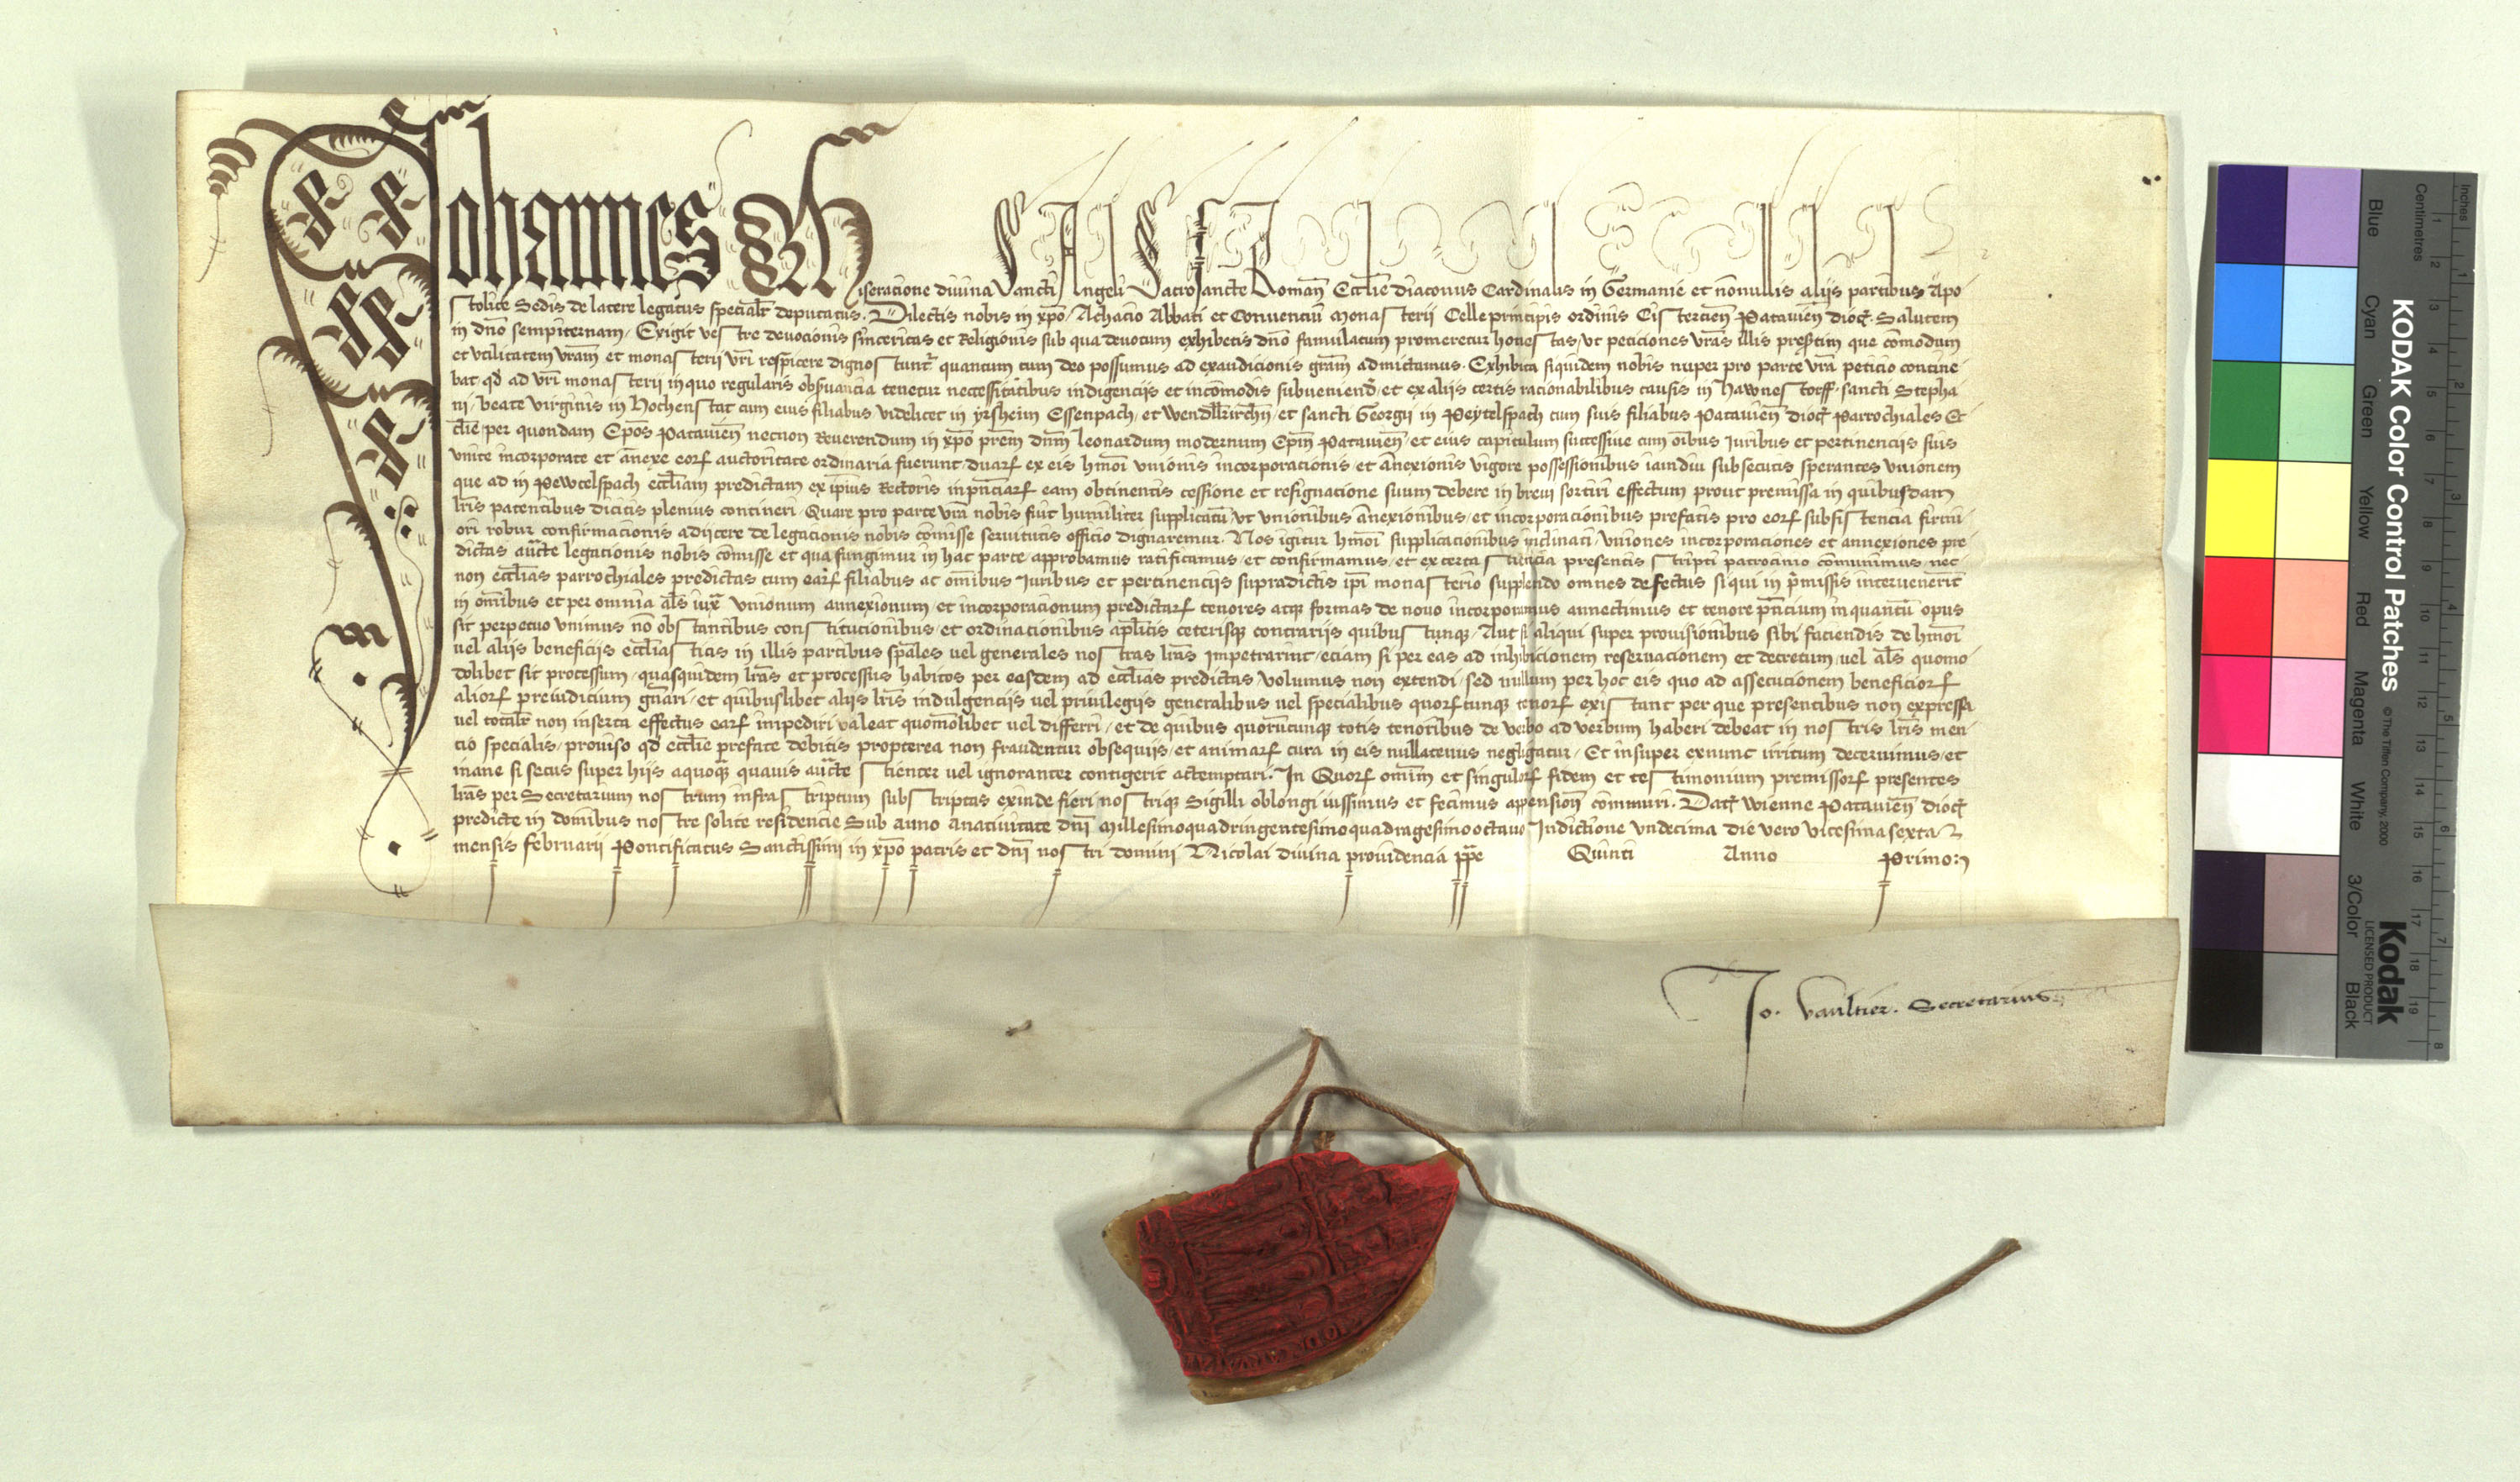 Johannes Miseracione divina Sancti Angeli Sacrosancte Romañ Ecclie diaconus Cardinalis in Germanie et nõnullis alijs partibus Apo
stolice Sedis de latere legatus specialr̃ deputatus. Dilectis nobis in xp̃o Achacio Abbati et Conventui Monasterii Celle principis ordinis Cistercieñ Patavieñ dioc̃. Salutem
in dño sempiternam. Exigit vestre devocionis sinceritas et Religionis sub qua devotum exhibetis dño famulatum promeretur honestas, ut peticiones vrãs illis preſtim que cõmodum
et utilitatem vram̃ et monasterii vrĩ respicere dignoscuntr̃ quantum cum deo possumus ad exaudicionis grãm admictamus. Exhibita siquidem nobis nuper pro parte vrã peticio contine
bat qd̃ ad vrĩ monasterii in quo regularis obſvancia tenetur necessitatibus indigencijs et incõmodis subveniend̃ et ex aliis certis racionabilibus causis in Hawnestorff, sancti Stepha
ni, beate virginis in Hochenstat cum eius filiabus videlicet in yrsheim Essenpach, et Wendlkirchñ, et sancti Georgii in Peytelspach cum suis filiabus Patavieñ dioc̃ Parrochiales Ec
clie͂ per quondam Epõs Patavieñ necnon Reverendum in xp̃o prẽm dñm leonardum modernum Epm̃ Patavieñ et eius capitulum successive cum oĩbus Iuribus et pertinencijs suis
unite incorporate et añexe eorꝝ auctoritate ordinaria fuerunt, duarꝝ ex eis hmõi unionis incorporacionis et añexionis vigore possessionibus iamdiu subsecutis sperantes unionem
que ad in Pewtelspach eccliam̃ predictam ex ipĩus Rectoris inpñciarꝝ eam obtinentis cessione et resignacione suum debere in brevi sortiri effectum prout premissa in quibusdam
lrĩs patentibus dicitis plenius contineri. Quare pro parte vrã nobis fuit humiliter supplicatũ ut unionibus añexionibus et incorporacionibus prefatis pro eorꝝ subsistencia firmi
ori robur confirmacionis adijcere de legacionis nobis cõmisse servitutis officio dignaremur. Nos igitur hmõi supplicacionibus inclinati, uniones incorporaciones et annexiones pre
dictas auc̃te legationis nobis cõmisse et qua fungimur in hac parte, approbamus ratificamus, et confirmamus, et ex certa sciencia presentis scripti patrocinio cõmunimus, nec
non ecclias̃ parrochiales predictas cum earꝝ filiabus ac omĩbus Iuribus et pertinencijs supradictis ipĩ monasterio supplendo omnes defectus si qui in p̃missis intervenerit̃
in omĩbus et per omnia als̃ iuxᵃ unionum annexionum et incorporacionum predictarꝝ tenores atqꝫ formas de novo incorporamus annectimus et tenore pñcium in quantũ opus
sit perpetuo unimus nõ obstantibus constitucionibus et ordinacionibus aplicis̃ ceterisqꝫ contrarijs quibuscunqꝫ. Aut si aliqui super provisionibus sibi faciendis de hmõi
vel aliis beneficijs eccliasticis̃ in illis partibus spãles vel generales nostras lrãs impetrarint, eciam si per eas ad inhibicionem reservacionem et decretum, vel als̃ quomo
dolibet sit processum, quasquidem lrãs et processus habitos per easdem ad ecclias̃ predictas volumus non extendi, sed nullum per hoc eis quo ad assecucionem beneficiorꝝ
aliorꝝ preiudicium gñari, et quibuslibet aliis lrĩs indulgencijs vel privilegijs generalibus vel specialibus quorꝝcunqꝫ tenorꝝ existant per que presentibus non expressa
vel totalr̃ non inserta effectus earꝝ impediri valeat quomõlibet vel differri, et de quibus quorũcunqꝫ totis tenoribus de verbo ad verbum haberi debeat in nostris lrĩs men
cio specialis, proviso qd̃ ecclie͂ prefate debitis propterea non fraudentur obsequijs, et animarꝝ cura in eis nullatenus negligatur. Et insuper exnunc irritum decernimus, et
inane si secus super hijs a quoqᵃ quavis auc̃te scienter vel ignoranter contigerit actemptari. In Quorꝝ omĩm et singulorꝝ fidem et testimonium premissorꝝ presentes
lrãs per Secretarium nostrum infrascriptum subscriptas exinde fieri nostriqꝫ Sigilli oblongi iussimus et fecimus appensioñ cõmuniri. Dat̃ Wienne Patavieñ dioc̃
predicte in domibus nostre solite residencie Sub anno a nativitate dñi Millesimoquadringentesimoquadragesimooctavo Indictione undecima die vero vicesima sexta
mensis februarii Pontificatus Sanctissimi in xp̃o patris et dñi nostri domini Nicolai divina providencia pp̃e Quinti Anno Primo:
Jo. Vaultier. Secretarius
KODAK Color Control Patches
© The Tiffen Company, 2000
Kodak
LICENSED PRODUCT
Blue Cyan Green Yellow Red Magenta White 3/Color Black
Inches 1 2 3 4 5 6 7 8
Centimetres 1 2 3 4 5 6 7 8 9 10 11 12 13 14 15 16 17 18 19